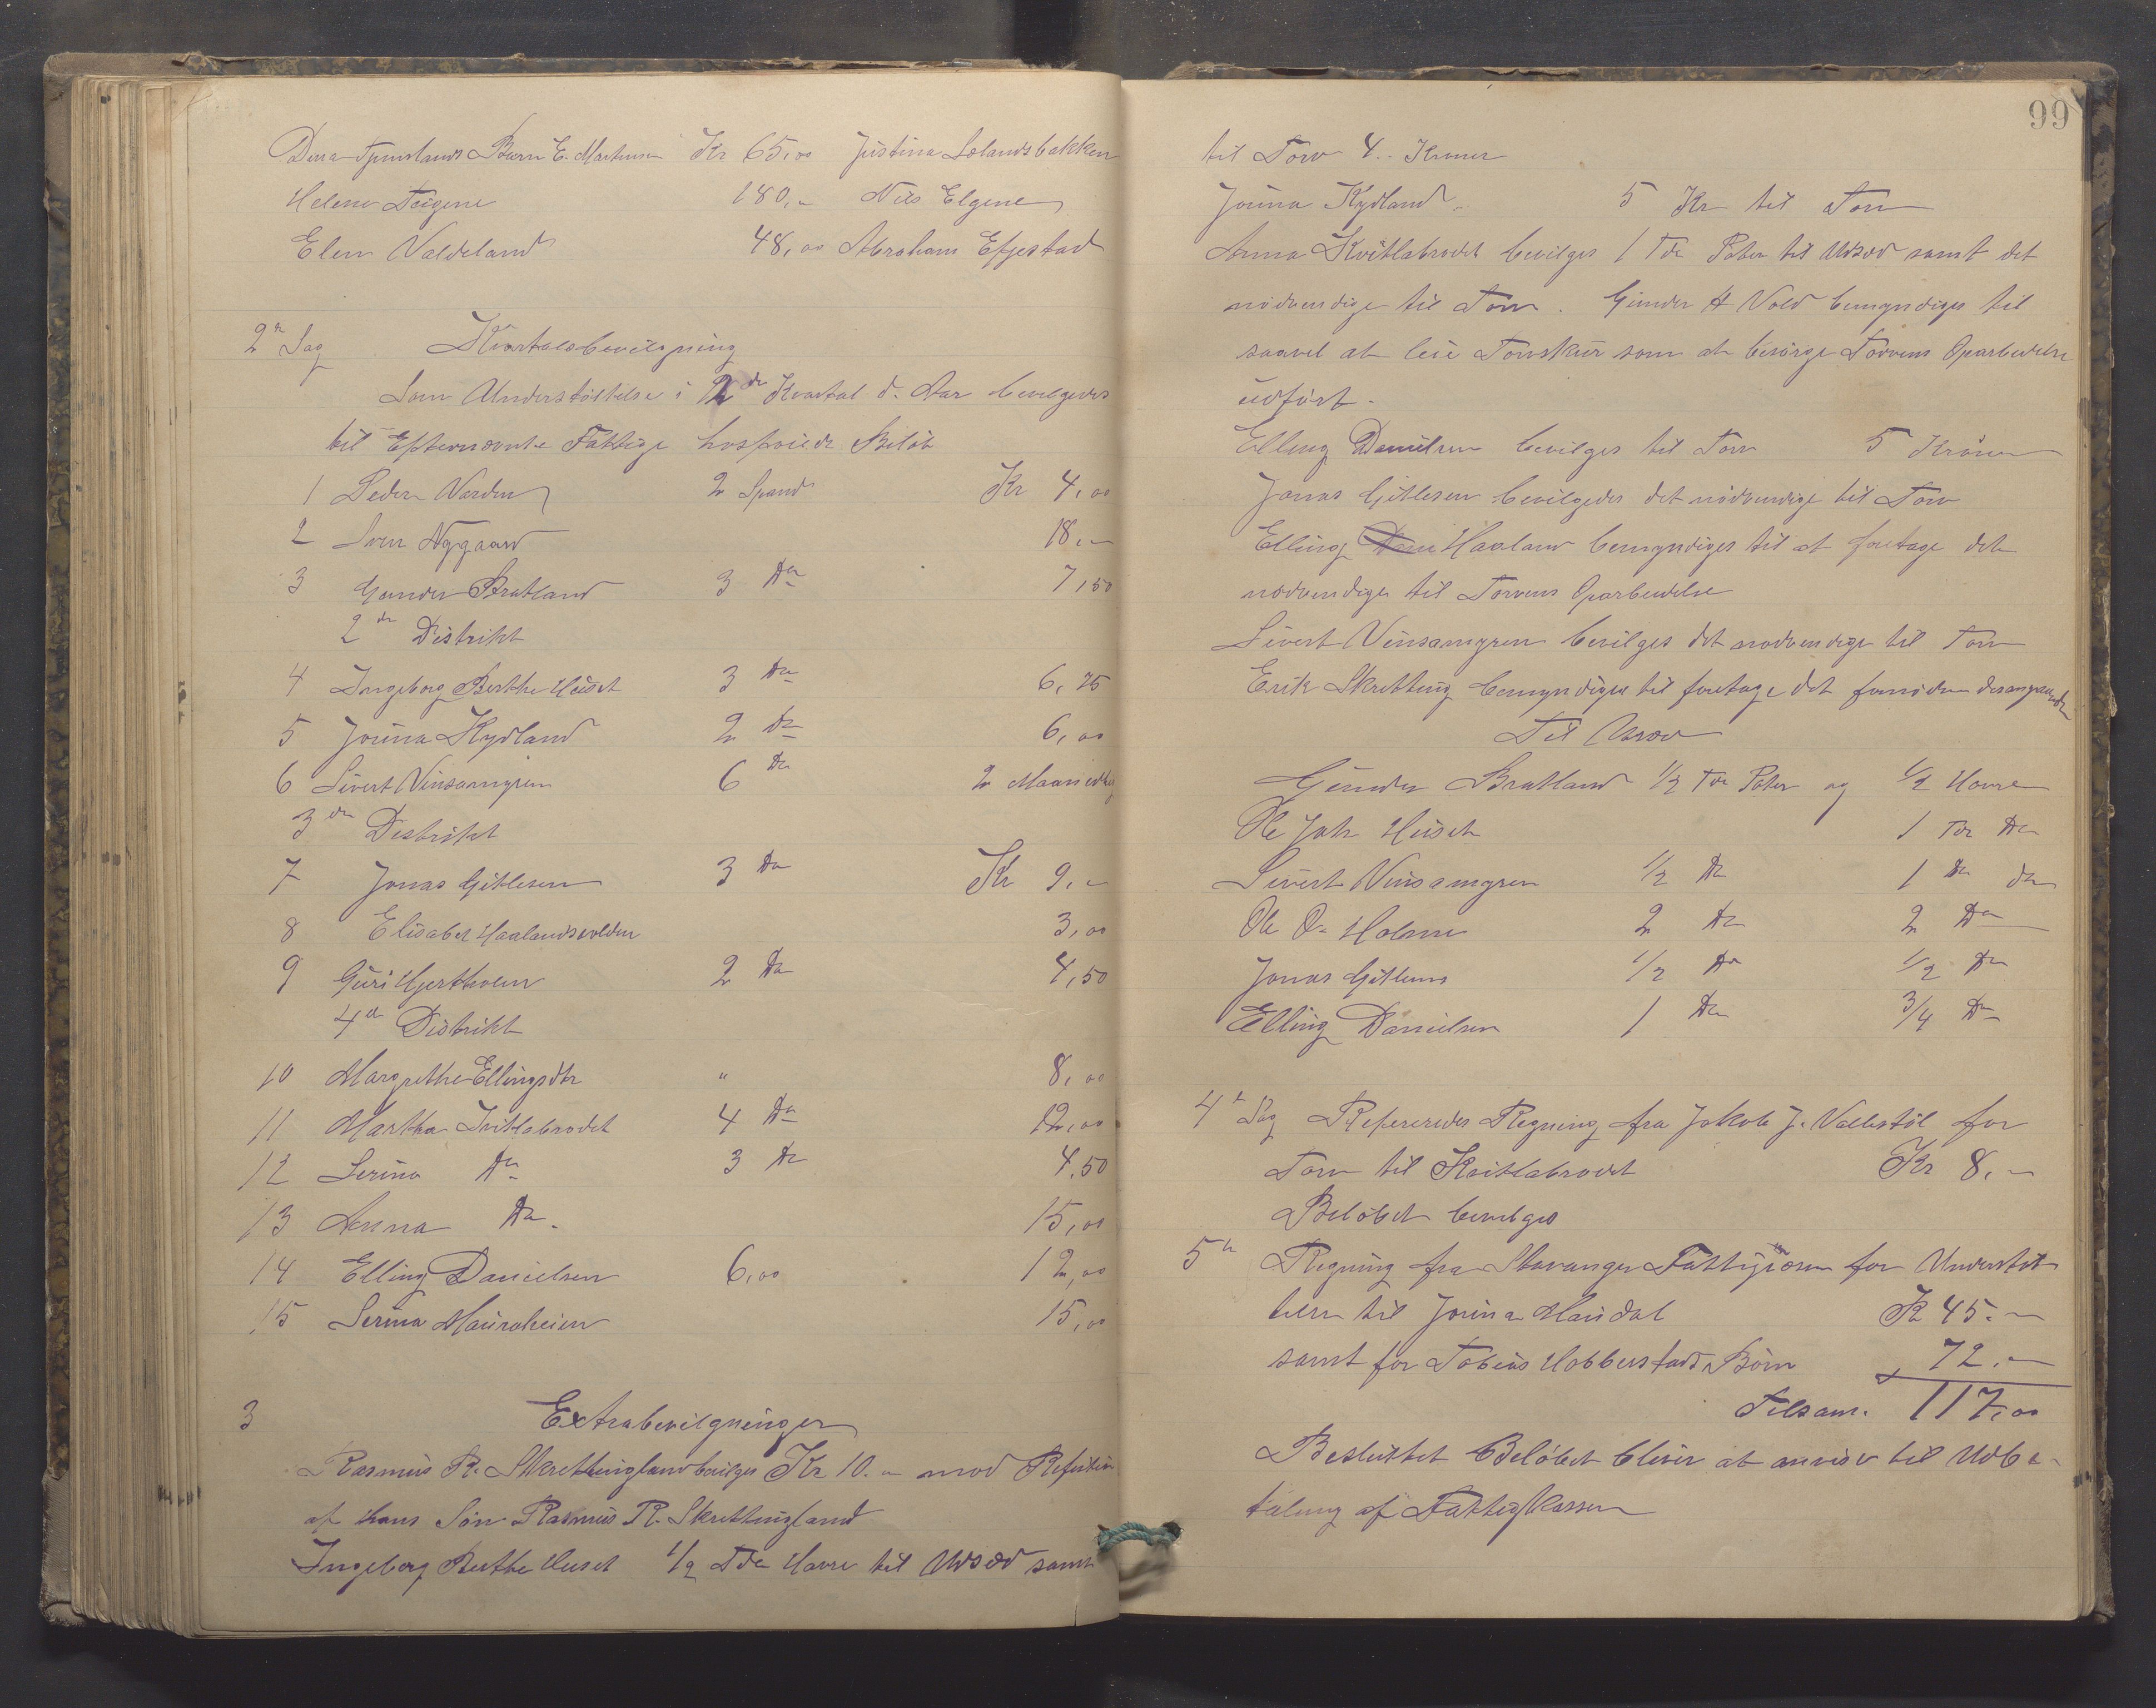 Dena Tjemslands Barn E. Mathisen Kr 65,00 Justina Lolandsbakken
Helene Teigene 180,- Nils Elgene
Elen Valdeland 48,00 Abraham Efjestad
2n Sag Kvartalsbevilgning
Som Understöttelse i 2de Kvartal d. Aar bevilgedes
til Efternævnte Fattige hosföiede Belöb
1 Peder Varden 2 Spand Kr 4,00
2 Sven Nygaard 18,-
3 Gunder Bratland 3 Do 7,50
2de Distrikt
4 Ingeborg Berthe Huset 3 Do 6,75
5 Jorina Kydland 2 Do 6,00
6 Sivert Vinsamyren 6 Do 2 Maanedlig
3de Distrikt
7 Jonas Gitlesen 3 Do Kr 9,-
8 Elisabet Haalandsvolden 3,00
9 Guri Hjertholen 2 Do 4,50
4de Distrikt
10 Margrethe Ellingsdtr " 8,00
11 Martha Kvitlabrodet 4 Do 12,00
12 Serina Do 3 Do 4,50
13 Anna Do 15,00
14 Elling Danielsen 6,00 12,00
15 Serina Mauraheien 15,00
3 Extrabevilgninger
Rasmus R. Skrettingland bevilges Kr 10.- mod Refution
af hans Sön Rasmus R. Skrettingland
Ingeborg Berthe Huset 1/2 Tde Havre til Udsæd samt
99
til Torv 4.. Kroner
Jorina Kydland 5 Kr til Torv
Anna Kvitlabrodet bevilges 1 Tde Poter til Udsæd samt det
nödvendige til Torv. Gunder H Vold bemyndiges til
saavel at leie Torvskur som at besörge Torvens Oparbeidelse
udfört.
Elling Danielsen bevilges til Torv 5 Kroner
Jonas Gitlesen bevilgedes det nödvendige til Torv
Elling Haaland bemyndiges til at foretage det
nödvendige til Torvens Oparbeidelse
Sivert Vinsamyren bevilges det nödvendige til Torv
Erik Skretting bemyndiges til foretage det fornödne desangaaende
Til Udsæd
Gunder Bratland 1/2 Tde Poter og 1/2 Havre
Ole Joh Huset 1 Tde Do
Sivert Vinsamyren 1/2 Do 1 Do do
Ole O. Holmen 2 Do 2 Do
Jonas Gitlesens 1/2 Do 1/2 Do
Elling Danielsen 1 Do 3/4 Do
4n Sag Refereredes Regning fra Jakob J. Vallestöl for
Torv til Kvitlabrodet Kr 8,-
Belöbet bevilges
5n Regning fra Stavanger Fattigvæsen for Understöt
telse til Jorina Mandal Kr 45.-
samt for Tobias Hobberstads Börn 72.-
Tilsam. 117,00
Besluttet Belöbet bliver at anvise til Udbe-
taling af Fattigkassen